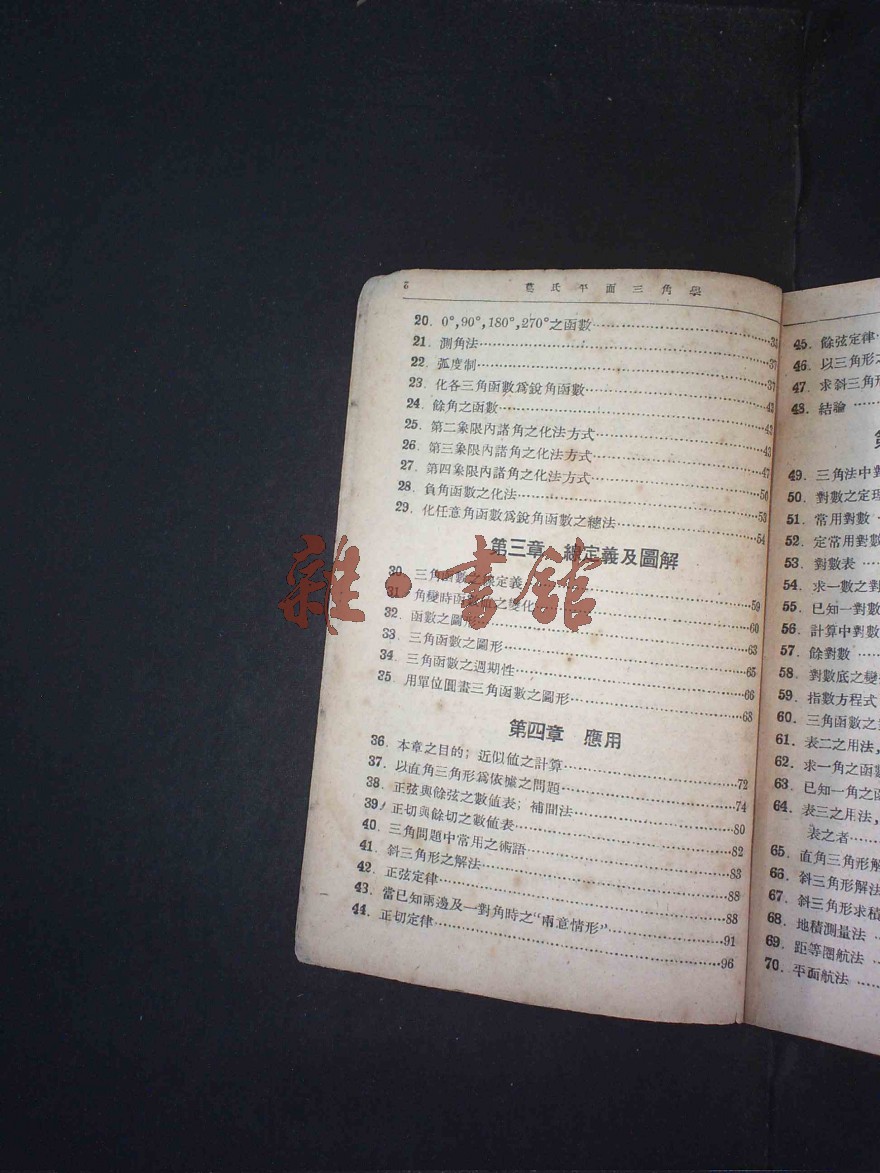 6 葛氏平面三角學
20. 0°,90°,180°,270°之函數 35
21. 測角法 37
22. 弧度制 37
23. 化各三角函數爲銳角函數 43
24. 餘角之函數 43
25. 第二象限內諸角之化法方式 43
26. 第三象限內諸角之化法方式 47
27. 第四象限內諸角之化法方式 50
28. 負角函數之化法 53
29. 化任意角函數爲銳角函數之總法 54
第三章 線定義及圖解
30. 三角函數之線定義 59
31. 角變時函數值之變化 60
32. 函數之圖形 63
33. 三角函數之圖形 65
34. 三角函數之週期性 66
35. 用單位圓畫三角函數之圖形 68
第四章 應用
36. 本章之目的；近似值之計算 72
37. 以直角三角形爲依據之問題 74
38. 正弦與餘弦之數値表；補間法 80
39. 正切與餘切之數値表 82
40. 三角問題中常用之術語 83
41. 斜三角形之解法 88
42. 正弦定律 88
43. 當已知兩邊及一對角時之“兩意情形” 91
44. 正切定律 96
雜·書館
45. 餘弦定律
46. 以三角形之
47. 求斜三角形
48. 結論
49. 三角法中對
50. 對數之定理
51. 常用對數
52. 定常用對數
53. 對數表
54. 求一數之對
55. 已知一對數
56. 計算中對數
57. 餘對數
58. 對數底之變
59. 指數方程式
60. 三角函數之
61. 表二之用法，
62. 求一角之函數
63. 已知一角之函
64. 表三之用法，
表之者
65. 直角三角形解
66. 斜三角形解法
67. 斜三角形求積
68. 地積測量法
69. 距等圈航法
70. 平面航法